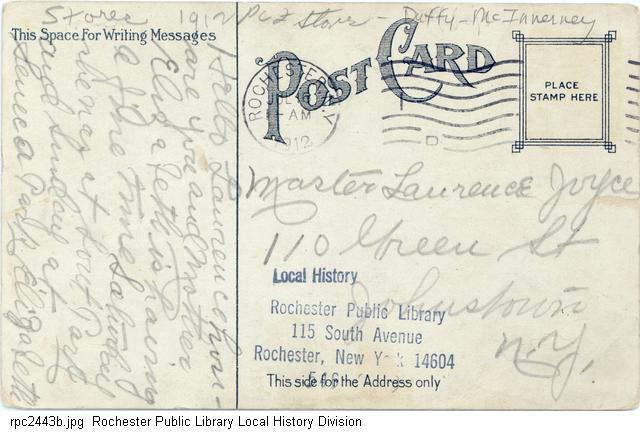 Stores 1912 Pcz Stores - Duffy-McInnerney
This Space For Writing Messages
POST CARD
PLACE
STAMP HERE
ROCHESTER, N.Y.
AM
1912
D
Hello Laurence how
are you and Mother
Elizabeth is having
a fine time Saturday
at Sout Park
and Sunday at
Seneca Park Elizabeth
Master Laurence Joyce
110 Green St
Johnstown
N.Y.
Local History
Rochester Public Library
115 South Avenue
Rochester, New York 14604
This side for the Address only
rpc2443b.jpg Rochester Public Library Local History Division